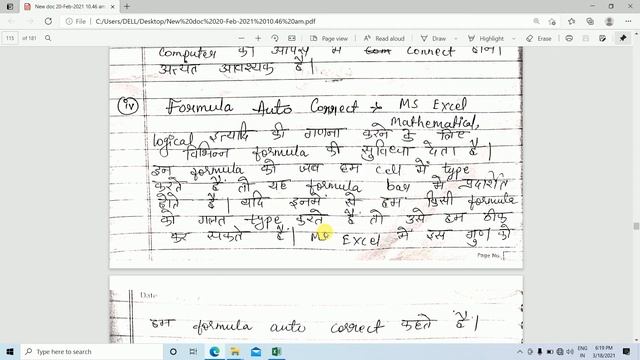 New doc 20-Feb-2021 10.46 am.pdf
C:/Users/DELL/Desktop/New%20doc%2020-Feb-2021%2010.46%20am.pdf
115 of 181
Page view
Read aloud
Draw
Highlight
Erase
Computer को आपस में Connect होना
अत्यंत आवश्यक है।
iv Formula Auto Correct → MS Excel
Mathematical,
logical इत्यादि की गणना करने के लिए
विभिन्न formula की सुविधा देता है।
इन formula को जब हम cell में type
करते हैं तो यह formula bar में प्रदर्शित
होते हैं। यदि इनमें से हम किसी formula
को गलत type करते हैं तो उसे हम ठीक
कर सकते हैं। MS Excel में इस गुण को
Page No.
Date
हम formula auto correct कहते हैं।
Type here to search
ENG
IN
6:19 PM
3/18/2021